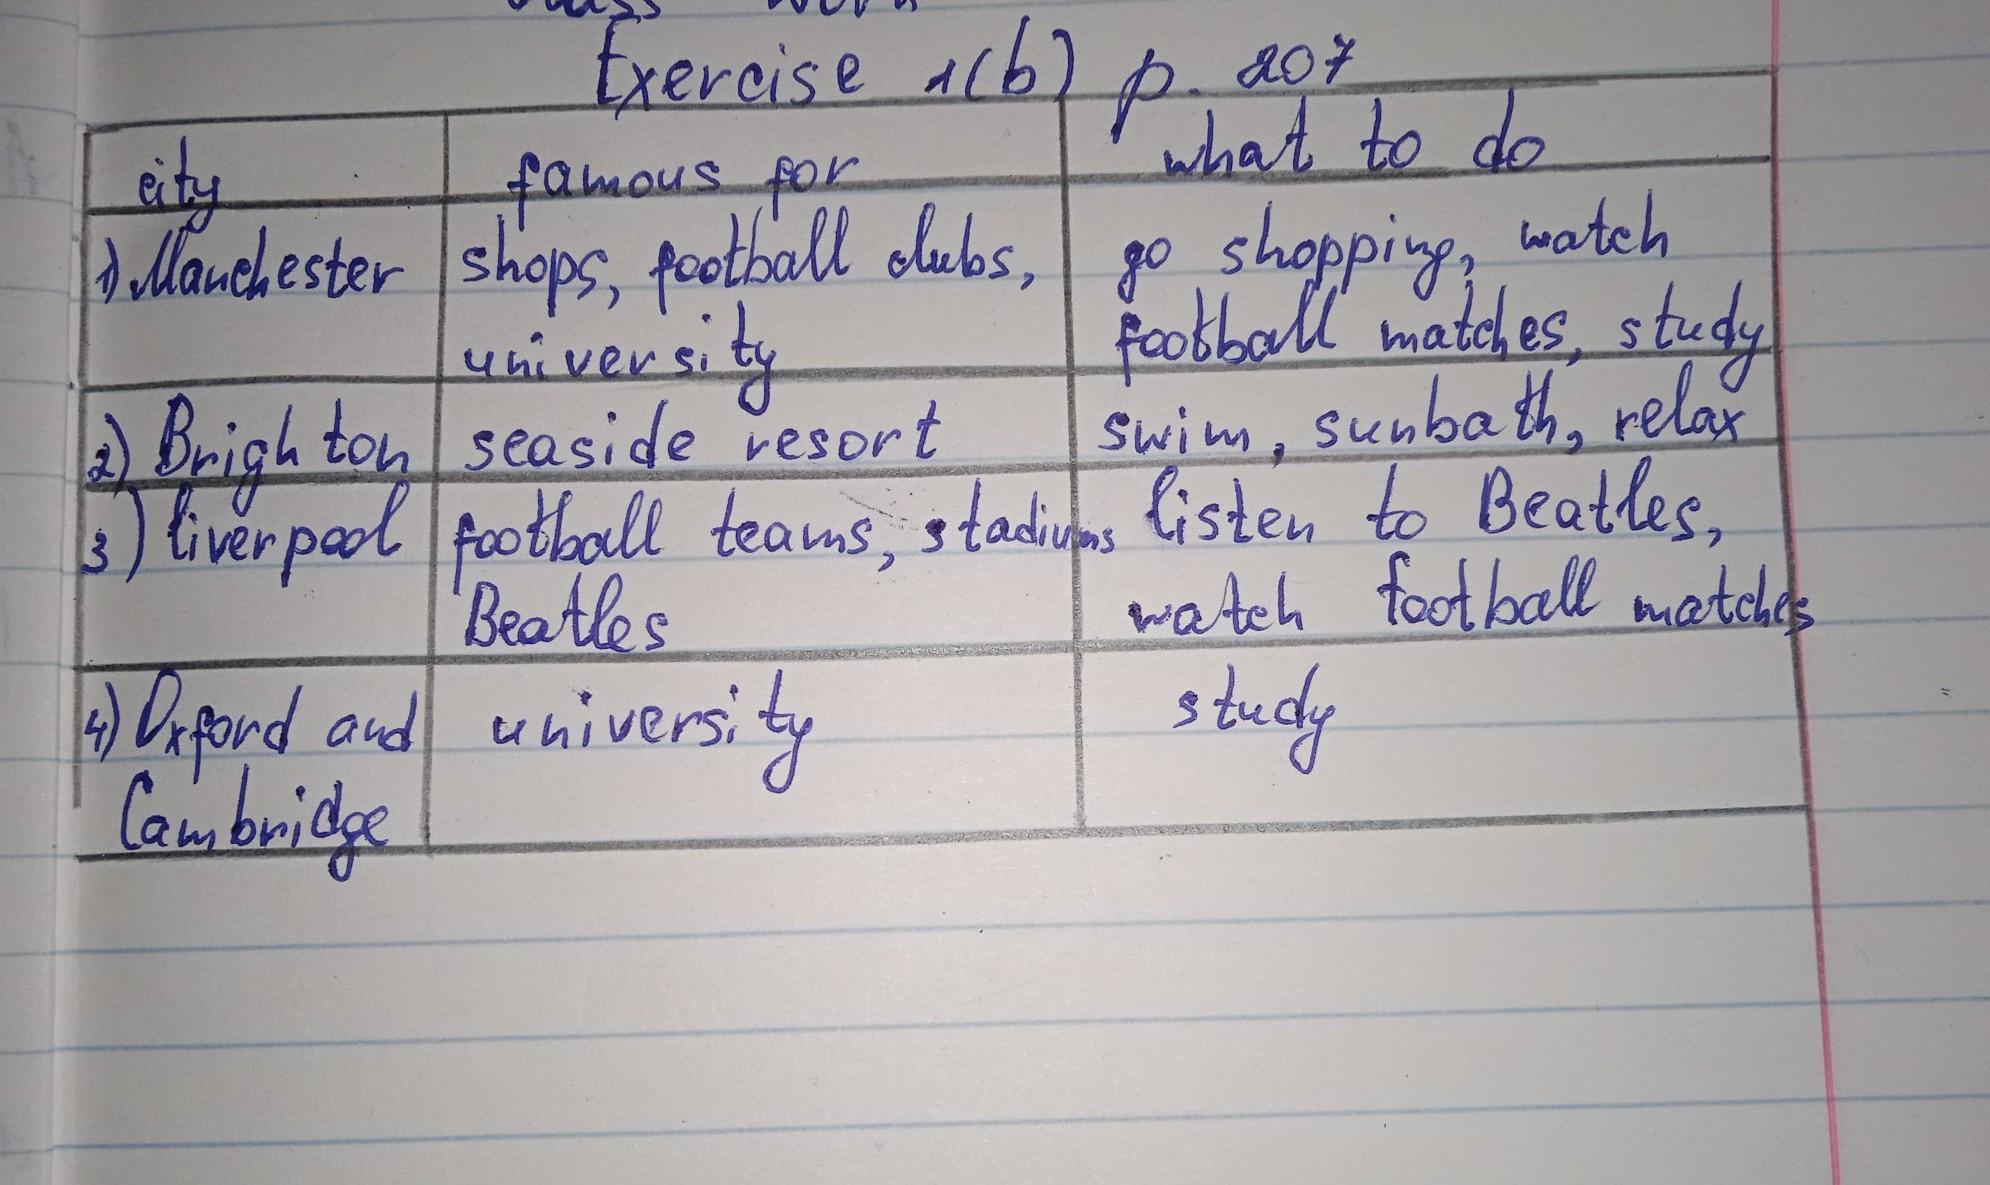 class work
Exercise 1(b) p. 207
city famous for what to do
1) Manchester shops, football clubs, go shopping, watch
university football matches, study
2) Brighton seaside resort swim, sunbath, relax
3) liverpool football teams, stadiums listen to Beatles,
Beatles watch football matches
4) Oxford and university study
Cambridge